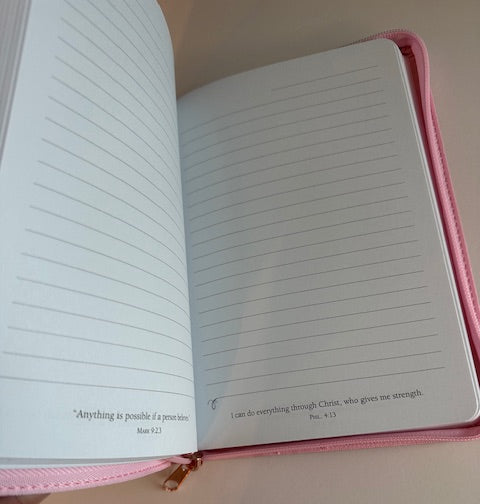 "Anything is possible if a person believes"
Mark 9:23
I can do everything through Christ, who gives me strength.
Phil. 4:13